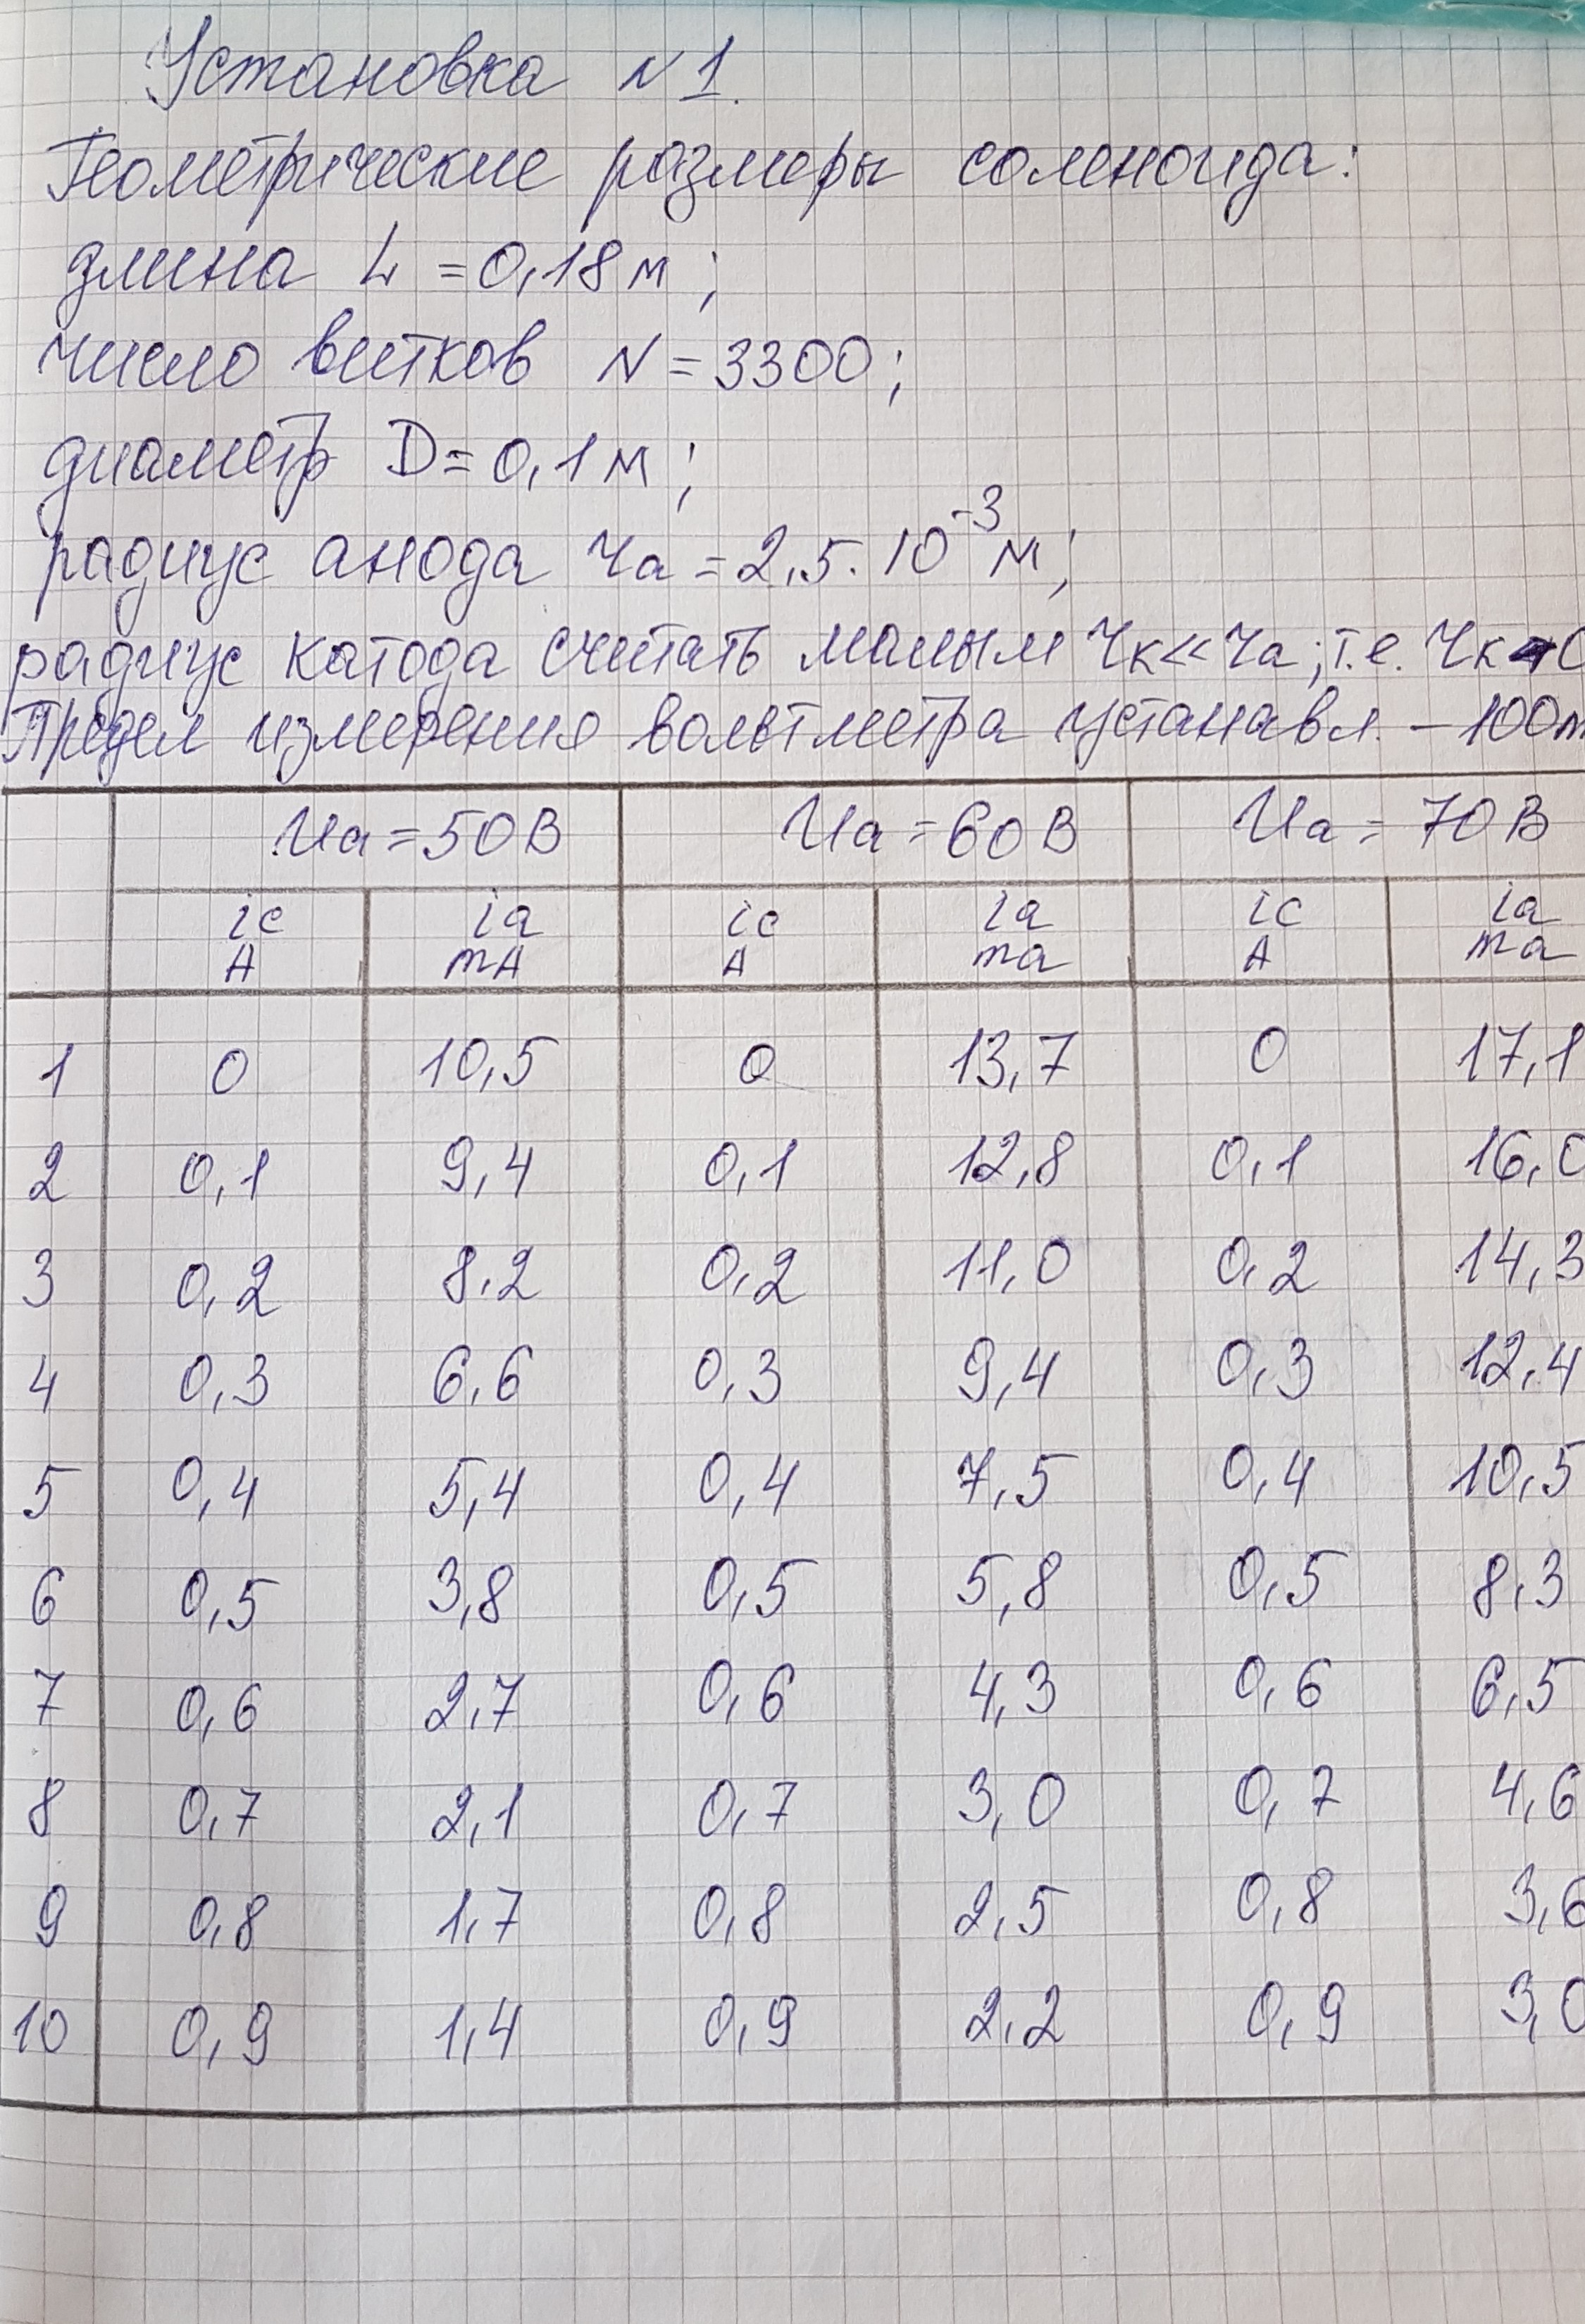 Установка N 1.
Геометрические размеры соленоида:
длина L = 0,18 м ;
число витков N = 3300 ;
диаметр D = 0,1 м ;
радиус анода rа = 2,5 · 10⁻³ м ;
радиус катода считать малым rк << rа ; т.е. rк
Предел измерения вольтметра устанавл. – 100m
Uа = 50 В Uа = 60 В Uа = 70 В
ic iа ic iа ic iа
A mA A ma A ma
1 0 10,5 0 13,7 0 17,1
2 0,1 9,4 0,1 12,8 0,1 16,0
3 0,2 8,2 0,2 11,0 0,2 14,3
4 0,3 6,6 0,3 9,4 0,3 12,4
5 0,4 5,4 0,4 7,5 0,4 10,5
6 0,5 3,8 0,5 5,8 0,5 8,3
7 0,6 2,7 0,6 4,3 0,6 6,5
8 0,7 2,1 0,7 3,0 0,7 4,6
9 0,8 1,7 0,8 2,5 0,8 3,6
10 0,9 1,4 0,9 2,2 0,9 3,0